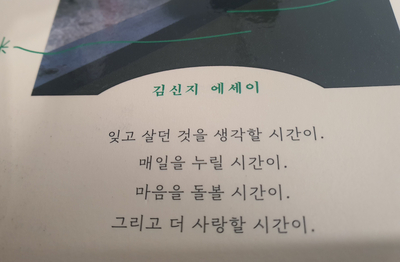 김신지 에세이
잊고 살던 것을 생각할 시간이.
매일을 누릴 시간이.
마음을 돌볼 시간이.
그리고 더 사랑할 시간이.